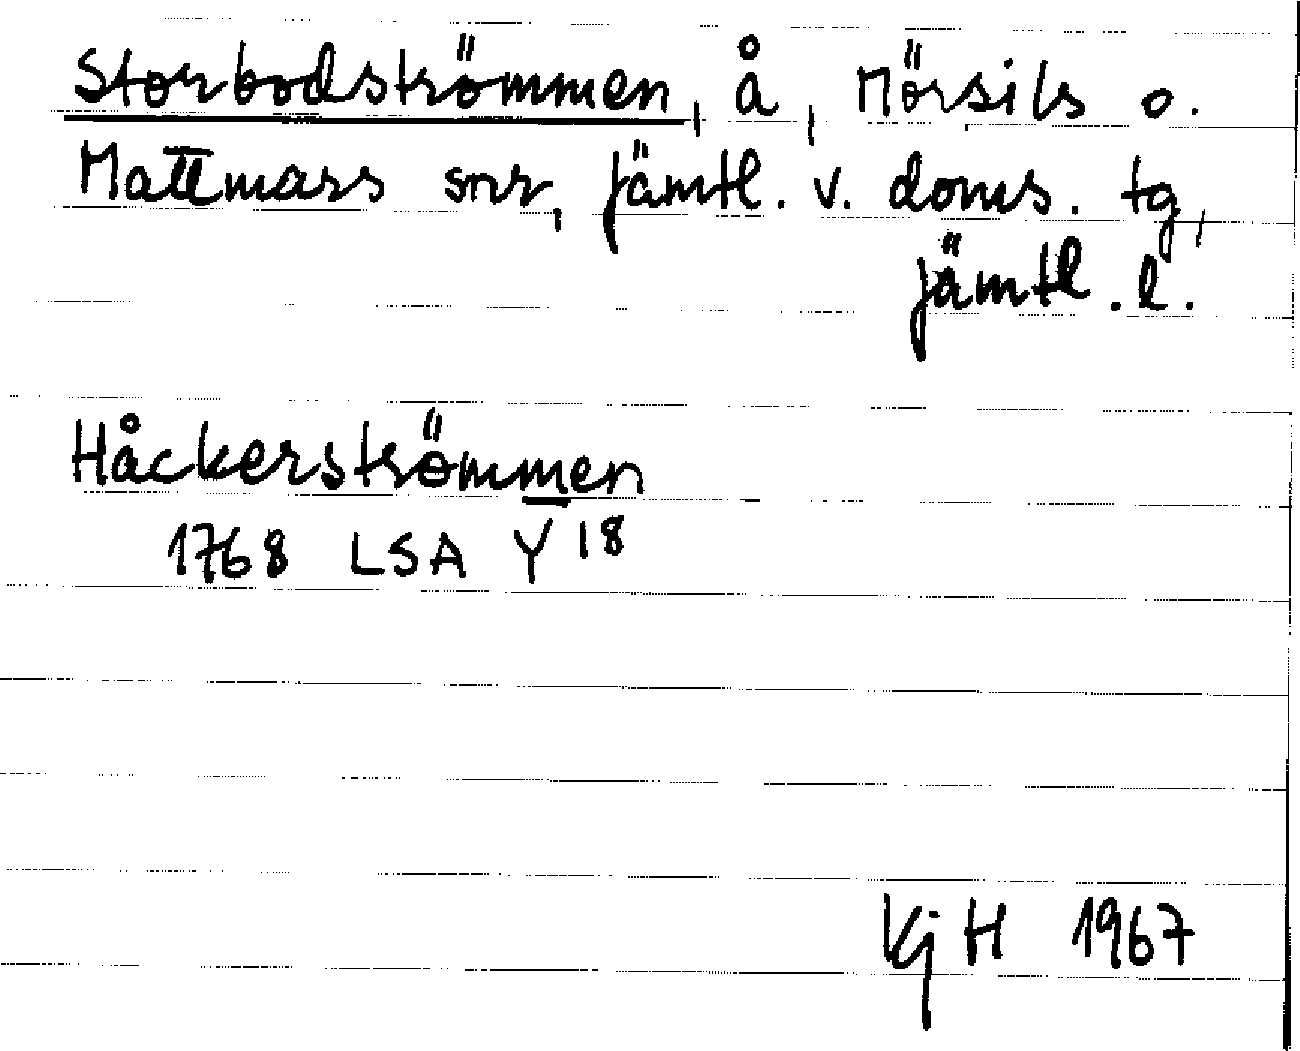 Storbodströmmen, å, Mörsils o.
Mattmars snr, Jämtl. v. doms. tg,
Jämtl. l.
Håckerströmmen
1768 LSA Y 18
KjH 1967